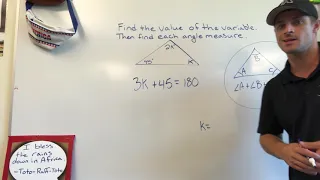 Find the value of the variable.
Then find each angle measure.
2K
45°
K
3K+45=180
B
A
C
∠A+∠B+
K=
I bless
the rains
down in Africa
-Toto